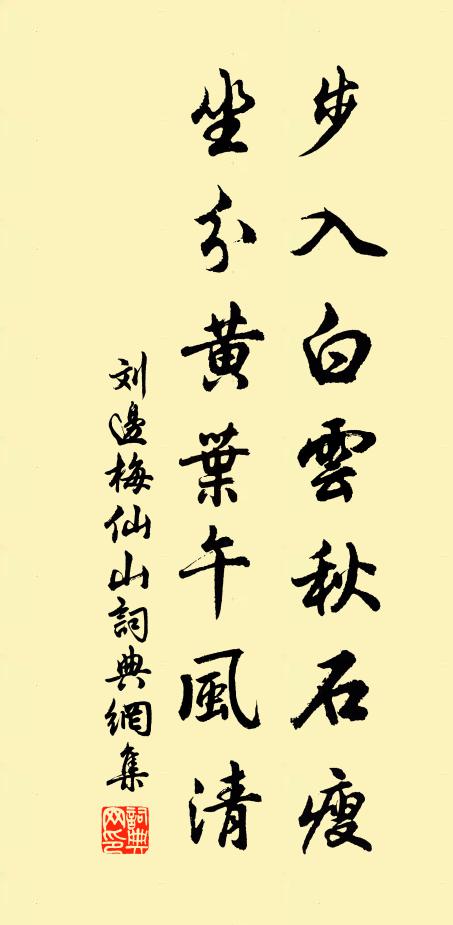 步入白雲秋石瘦
坐分黃葉午風清
刘邊梅仙山詞典網集
詞典網印